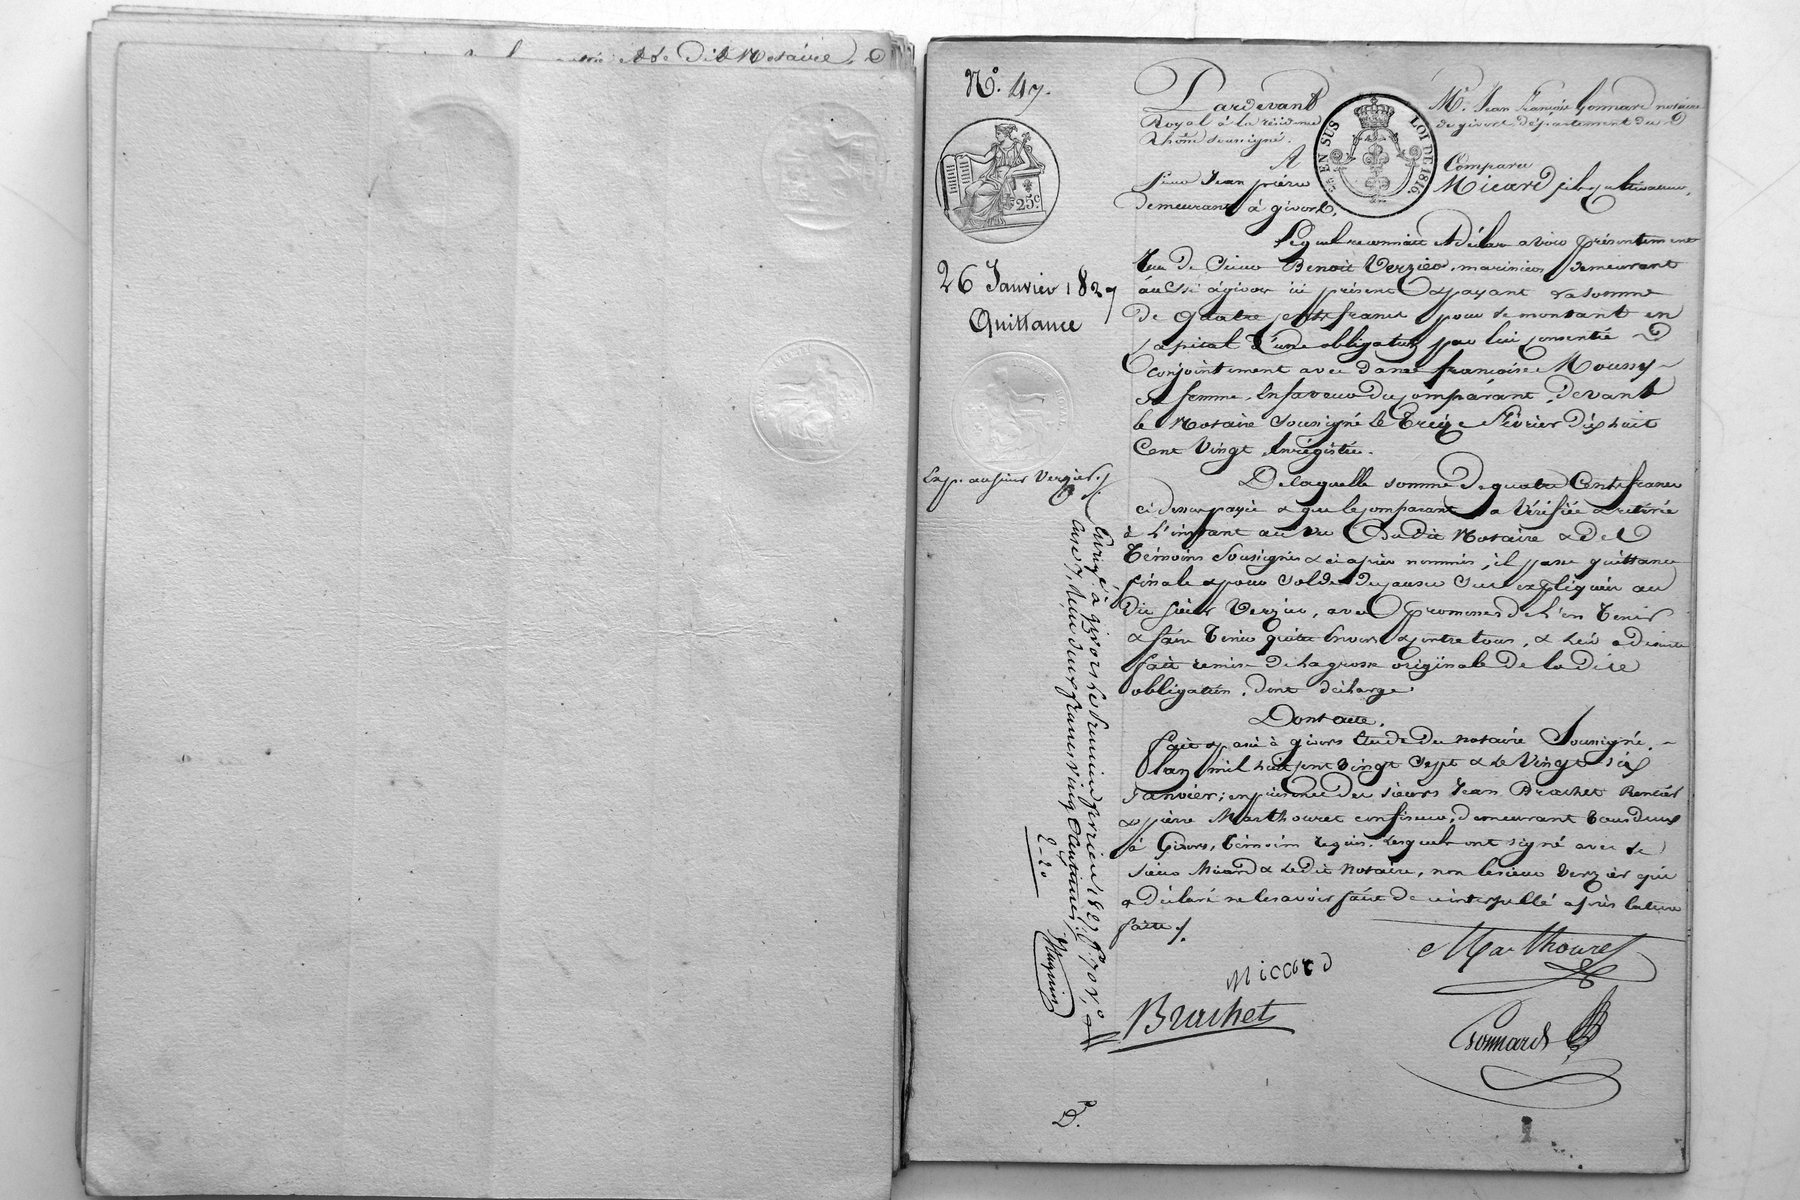 et de dit Notaire
N.° 47.
25.c
26 Janvier 1827
Quittance
Exp. au sieur Verzier
EN SUS
LOI DE 1816.
Pardevant M.e Jean François Gonnard notaire
Royal à la résidence de givors département du
Rhône soussigné.
A Comparu
Sieur Jean pierre Micard fils cultivateur,
demeurant à givors,
Lequel reconnait & déclare avoir présentement
reçu de Sieur Benoit Verzier, marinier demeurant
aussi à givors ici présent & payant la somme
de quatre cents francs pour le montant en
capital d'une obligation par lui consentie
conjointement avec dame françoise Moussy
sa femme, en faveur du comparant, devant
le Notaire Soussigné le Treize Février dixhuit
Cent Vingt, enrégistrée.
De laquelle somme de quatre Cents francs
ci dessus payée & que le comparant a Vérifiée & retirée
à l'instant au vu dudit Notaire & des
Témoins Soussignés & ci après nommés, il passe quittance
finale & pour solde des causes sus expliquées au
dit sieur Verzier, avec promesse de l'en tenir
& faire tenir quitte envers & contre tous, & lui a de suite
fait remise de la grosse originale de la dite
obligation, dont décharge
Dont acte,
fait & passé à givors Etude du notaire Soussigné,
l'an mil huit cent vingt sept & le Vingt six
Janvier; en présence des sieurs Jean Brachet Rentier
& pierre Marthouret confiseur, demeurant tous deux
à Givors, témoins requis, lesquels ont signé avec le
sieur Micard & ledit Notaire, non le sieur Verzier qui
a déclaré ne le savoir faire de ce interpellé après lecture
faite
Enrgé à givors le premier février 1827 f.° 70 v.°
case 7, reçu deux francs vingt centimes
2-20
Micard
Marthouret
Brachet
Gonnard